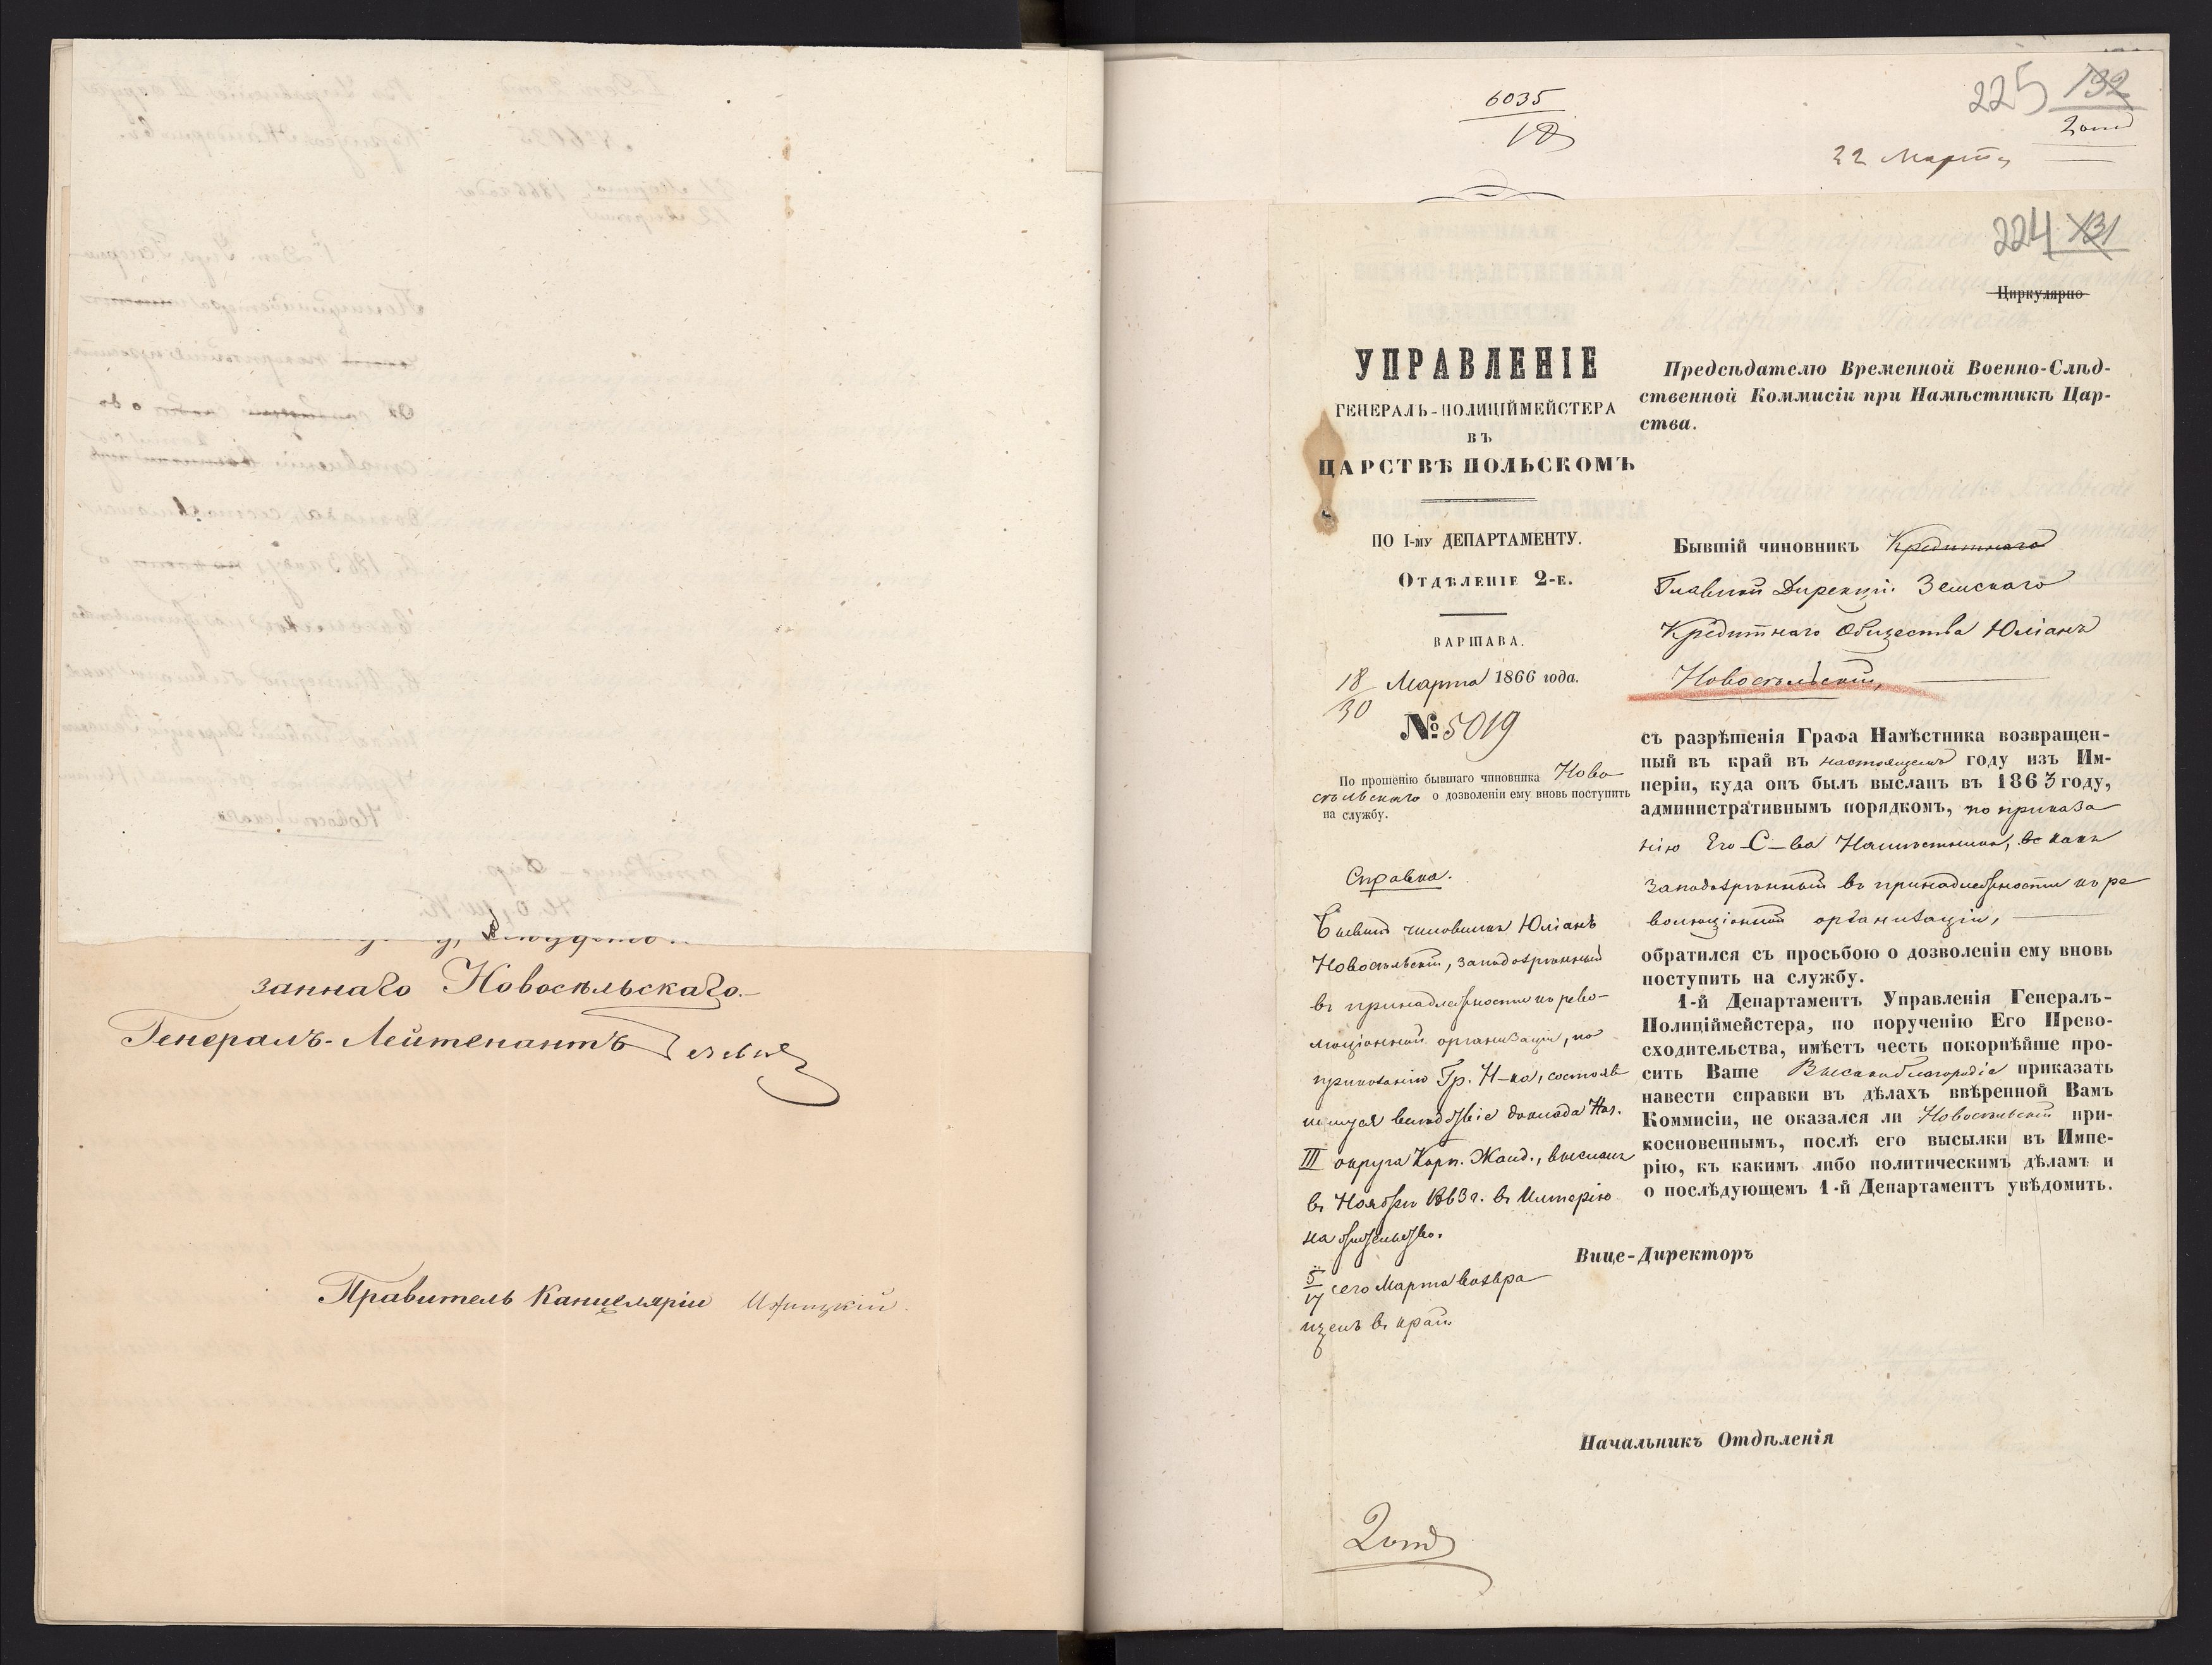 заннаго Новосѣльскаго.-
Генералъ-Лейтенантъ
Правитель Канцеляріи
6035
18
225 192
2 отд
22 Марта
224 131
Циркулярно
УПРАВЛЕНІЕ
ГЕНЕРАЛЪ-ПОЛИЦІЙМЕЙСТЕРА
ВЪ
ЦАРСТВѢ ПОЛЬСКОМЪ
ПО I-му ДЕПАРТАМЕНТУ.
Отдѣленіе 2-е.
ВАРШАВА.
18/30 Марта 1866 года.
№ 5019
По прошенію бывшаго чиновника Ново
сѣльскаго о дозволеніи ему вновь поступить
на службу.
Справка.
Бывшій чиновникъ Юліанъ
Новосѣльскій, заподозрѣнный
въ принадлежности къ рево-
люціонной организаціи, по
приказанію Гр. Н-ка, состояв
шемуся вслѣдствіе доклада Нач.
III округа Корп. Жанд., высланъ
въ Ноябрѣ 1863 г. въ Имперію
на жительство.
5/17 сего Марта возвра
щенъ въ край.
Предсѣдателю Временной Военно-Слѣд-
ственной Коммисіи при Намѣстникѣ Цар-
ства.
Бывшій чиновникъ Кредитнаго
Главной Дирекціи Земскаго
Кредитнаго Общества Юліанъ
Новосѣльскій,
съ разрѣшенія Графа Намѣстника возвращен-
ный въ край въ настоящемъ году изъ Им-
періи, куда онъ былъ высланъ въ 1863 году,
административнымъ порядкомъ, по приказа
нію Его С-ва Намѣстника, какъ
заподозрѣнный въ принадлежности къ ре
волюціонной организаціи,
обратился съ просьбою о дозволеніи ему вновь
поступить на службу.
1-й Департаментъ Управленія Генералъ-
Полиціймейстера, по порученію Его Прево-
сходительства, имѣетъ честь покорнѣйше про-
сить Ваше Высокоблагородіе приказать
навести справки въ дѣлахъ ввѣренной Вамъ
Коммисіи, не оказался ли Новосѣльскій при-
косновеннымъ, послѣ его высылки въ Импе-
рію, къ какимъ либо политическимъ дѣламъ и
о послѣдующемъ 1-й Департаментъ увѣдомить.
Вице-Директоръ
Начальникъ Отдѣленія